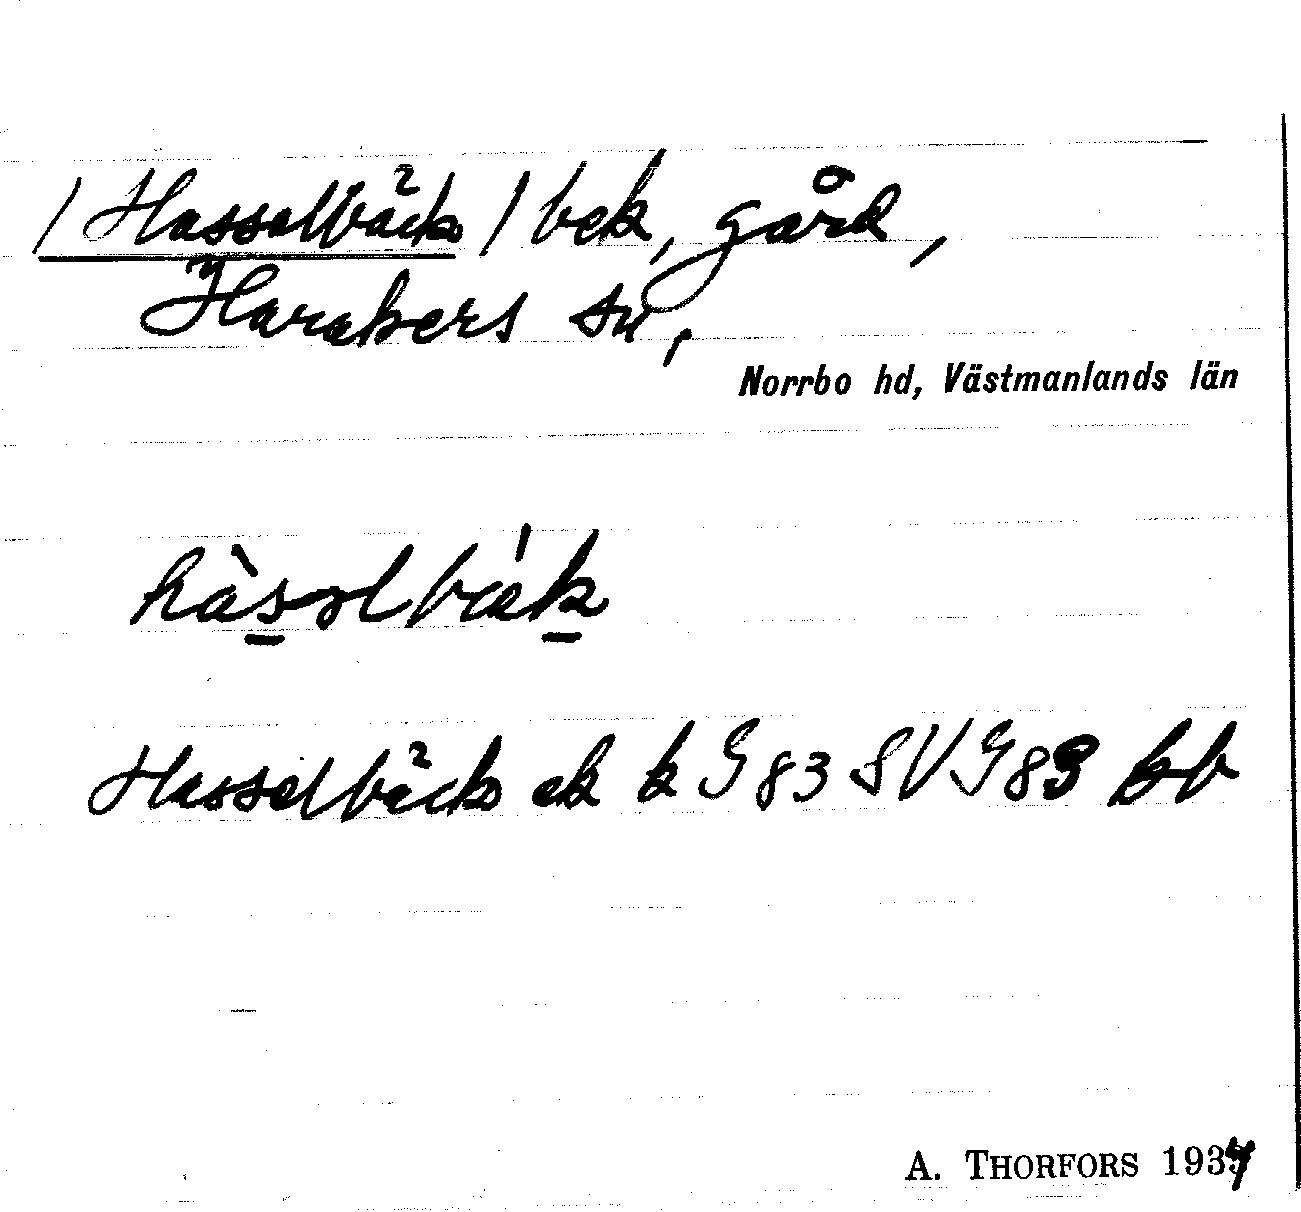 / Hasselbäck / bek, gård,
Haraker sn,
Norrbo hd, Västmanlands län
hàsəlbæ̀k
Hasselbäck ek k G 83 SV G 83 bb
A. THORFORS 1937